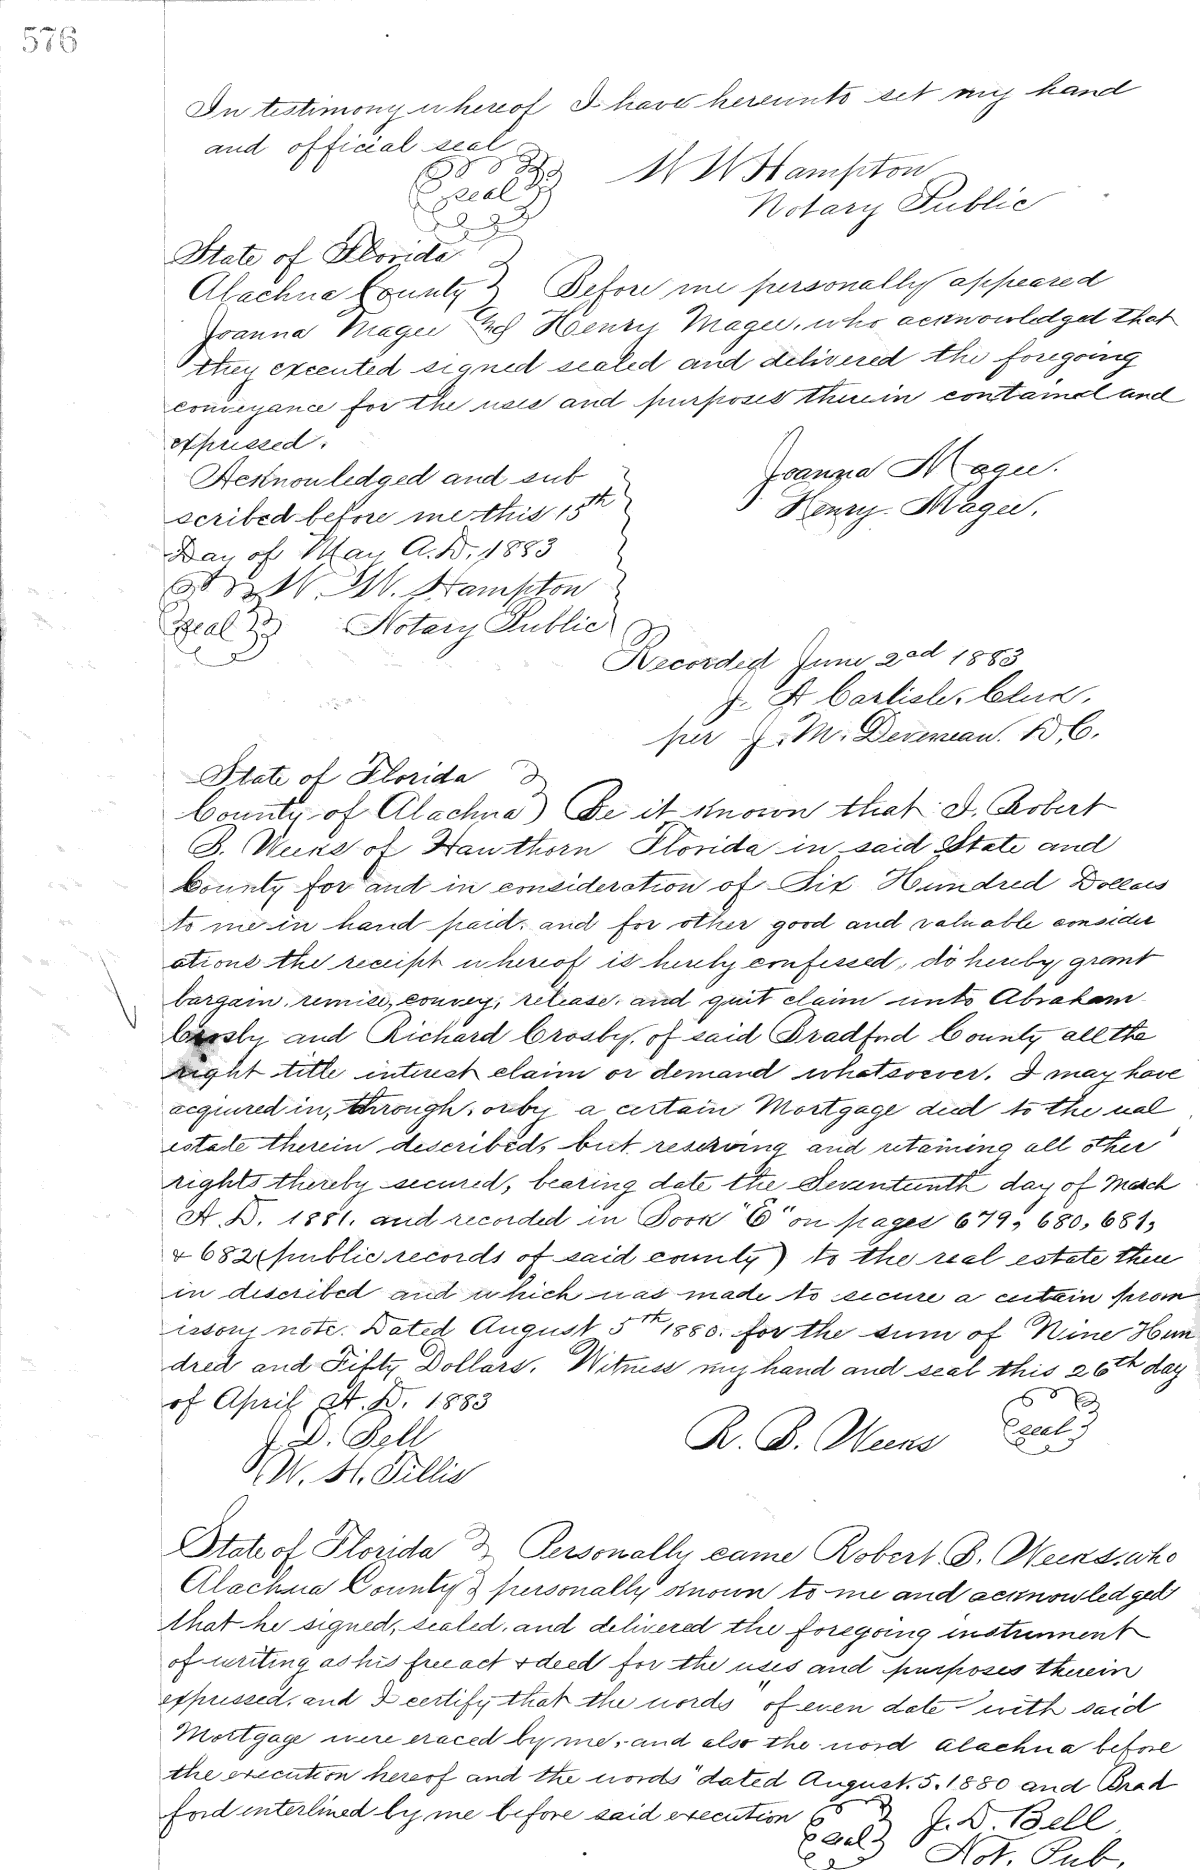 576
In testimony whereof I have hereunto set my hand
and official seal
seal
W W Hampton
Notary Public
State of Florida
Alachua County } Before me personally appeared
Joanna Magee and Henry Magee, who acknowledged that
they executed signed sealed and delivered the foregoing
conveyance for the uses and purposes therein contained and
expressed.
Joanna Magee.
Henry Magee.
Acknowledged and sub
scribed before me this 15th
Day of May A.D. 1883
W. W. Hampton
Seal Notary Public
Recorded June 2nd 1883
J. A Carlisle, Clerk,
per J. M. Devereau. D.C.
State of Florida
County of Alachua } Be it known that I. Robert
B. Weeks of Hawthorn Florida in said State and
County for and in consideration of Six Hundred Dollars
to me in hand paid, and for other good and valuable consider
ations the receipt whereof is hereby confessed, do hereby grant
bargain, remise, convey, release, and quit claim unto Abraham
Crosby and Richard Crosby, of said Bradford County all the
right title interest claim or demand whatsoever, I may have
acquired in, through, or by a certain Mortgage deed to the real
estate therein described, but reserving and retaining all other
rights thereby secured, bearing date the Seventeenth day of March
A. D. 1881. and recorded in Book "C" on pages 679, 680, 681,
& 682 (public records of said county) to the real estate there
in described and which was made to secure a certain prom
issory note. Dated August 5th 1880. for the sum of Nine Hun
dred and Fifty Dollars. Witness my hand and seal this 26th day
of April A. D. 1883
J. D. Bell
W. H. Tillis
R. B. Weeks seal
State of Florida } Personally came Robert B. Weeks, who
Alachua County } personally known to me and acknowledged
that he signed, sealed, and delivered the foregoing instrument
of writing as his free act & deed for the uses and purposes therein
expressed, and I certify that the words "of even date" with said
Mortgage were eraced by me, and also the word Alachua before
the execution hereof and the words "dated August. 5. 1880 and Brad
ford interlined by me before said execution
seal
J. D. Bell
Not. Pub.